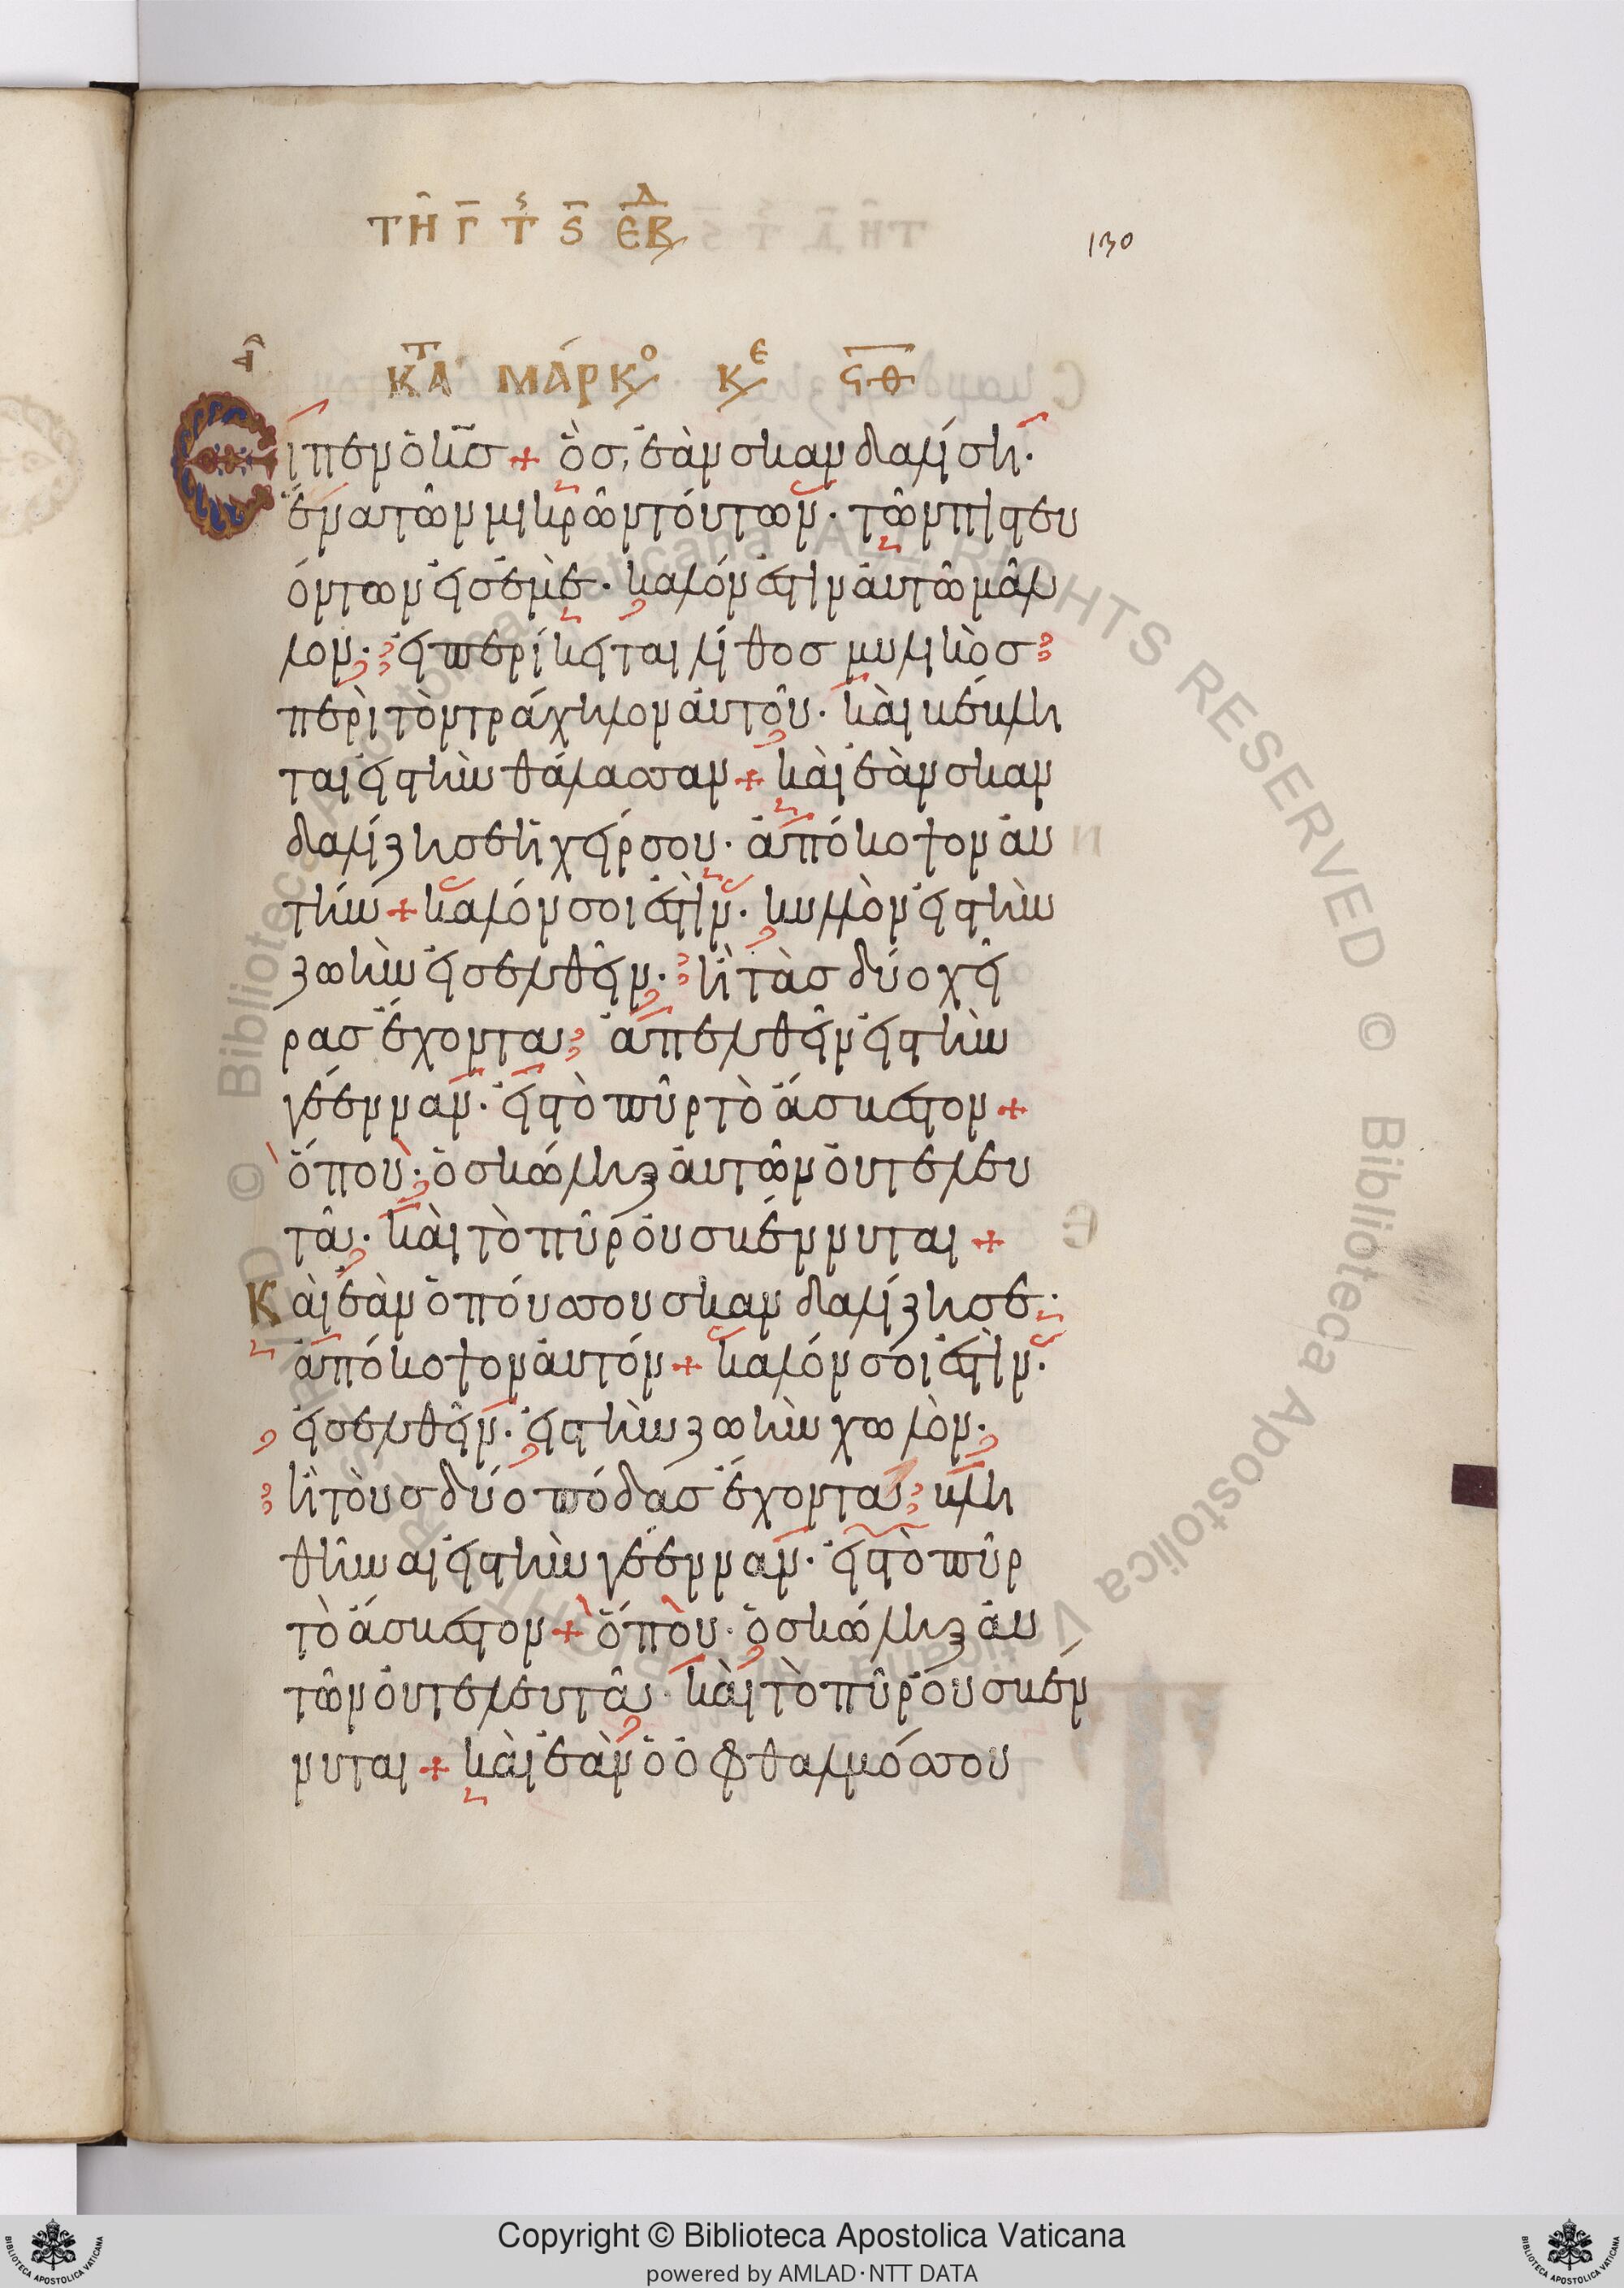 ΤΗ Γ Τς S ΕΒΔ
130
ΚΑΤ ΜΑΡΚο Κε ϟΘ
Εἶπεν ὁ κς + ὃσ ἐὰν σκανδαλίση·
ἕνα τῶν μικρῶν τούτων· τῶν πιστευ
όντων εἰσ ἐμὲ· καλόν ἐστιν αὐτῶ μᾶλ
λον· εἰ περίκειται λίθοσ μυλικὸσ
περὶ τὸν τράχηλον αὐτοῦ· καὶ βέβλη
ται εἰσ τὴν θάλασσαν + καὶ ἐὰν σκαν
δαλίζη σε ἡ χείρ σου· ἀπόκοψον αὐ
τήν + καλόν σοι ἐστὶν· κυλλὸν εἰσ τὴν
ζωὴν εἰσελθεῖν· ἢ τὰσ δύο χεῖ
ρασ ἔχοντα ἀπελθεῖν εἰσ τὴν
γέενναν· εἰσ τὸ πῦρ τὸ ἄσβεστον +
ὅπου· ὁ σκώληξ αὐτῶν οὐ τελευ
τᾶ· καὶ τὸ πῦρ οὐ σβέννυται +
Καὶ ἐὰν ὁ πούσ σου σκανδαλίζη σε·
ἀπόκοψον αὐτόν + καλόν σοι ἐστὶν·
εἰσελθεῖν· εἰσ τὴν ζωὴν χωλὸν·
ἢ τοὺσ δύο πόδασ ἔχοντα βλη
θῆναι εἰσ τὴν γέενναν· εἰσ τὸ πῦρ
τὸ ἄσβεστον + ὅπου· ὁ σκώληξ αὐ
τῶν οὐ τελευτᾶ· καὶ τὸ πῦρ οὐ σβέν
νυται + καὶ ἐὰν ὁ ὀφθαλμόσ σου
Copyright © Biblioteca Apostolica Vaticana
powered by AMLAD·NTT DATA
© Biblioteca Apostolica Vaticana ALL RIGHTS RESERVED © Biblioteca Apostolica Vaticana ALL RIGHTS RESERVED
BIBLIOTECA APOSTOLICA VATICANA
BIBLIOTECA APOSTOLICA VATICANA